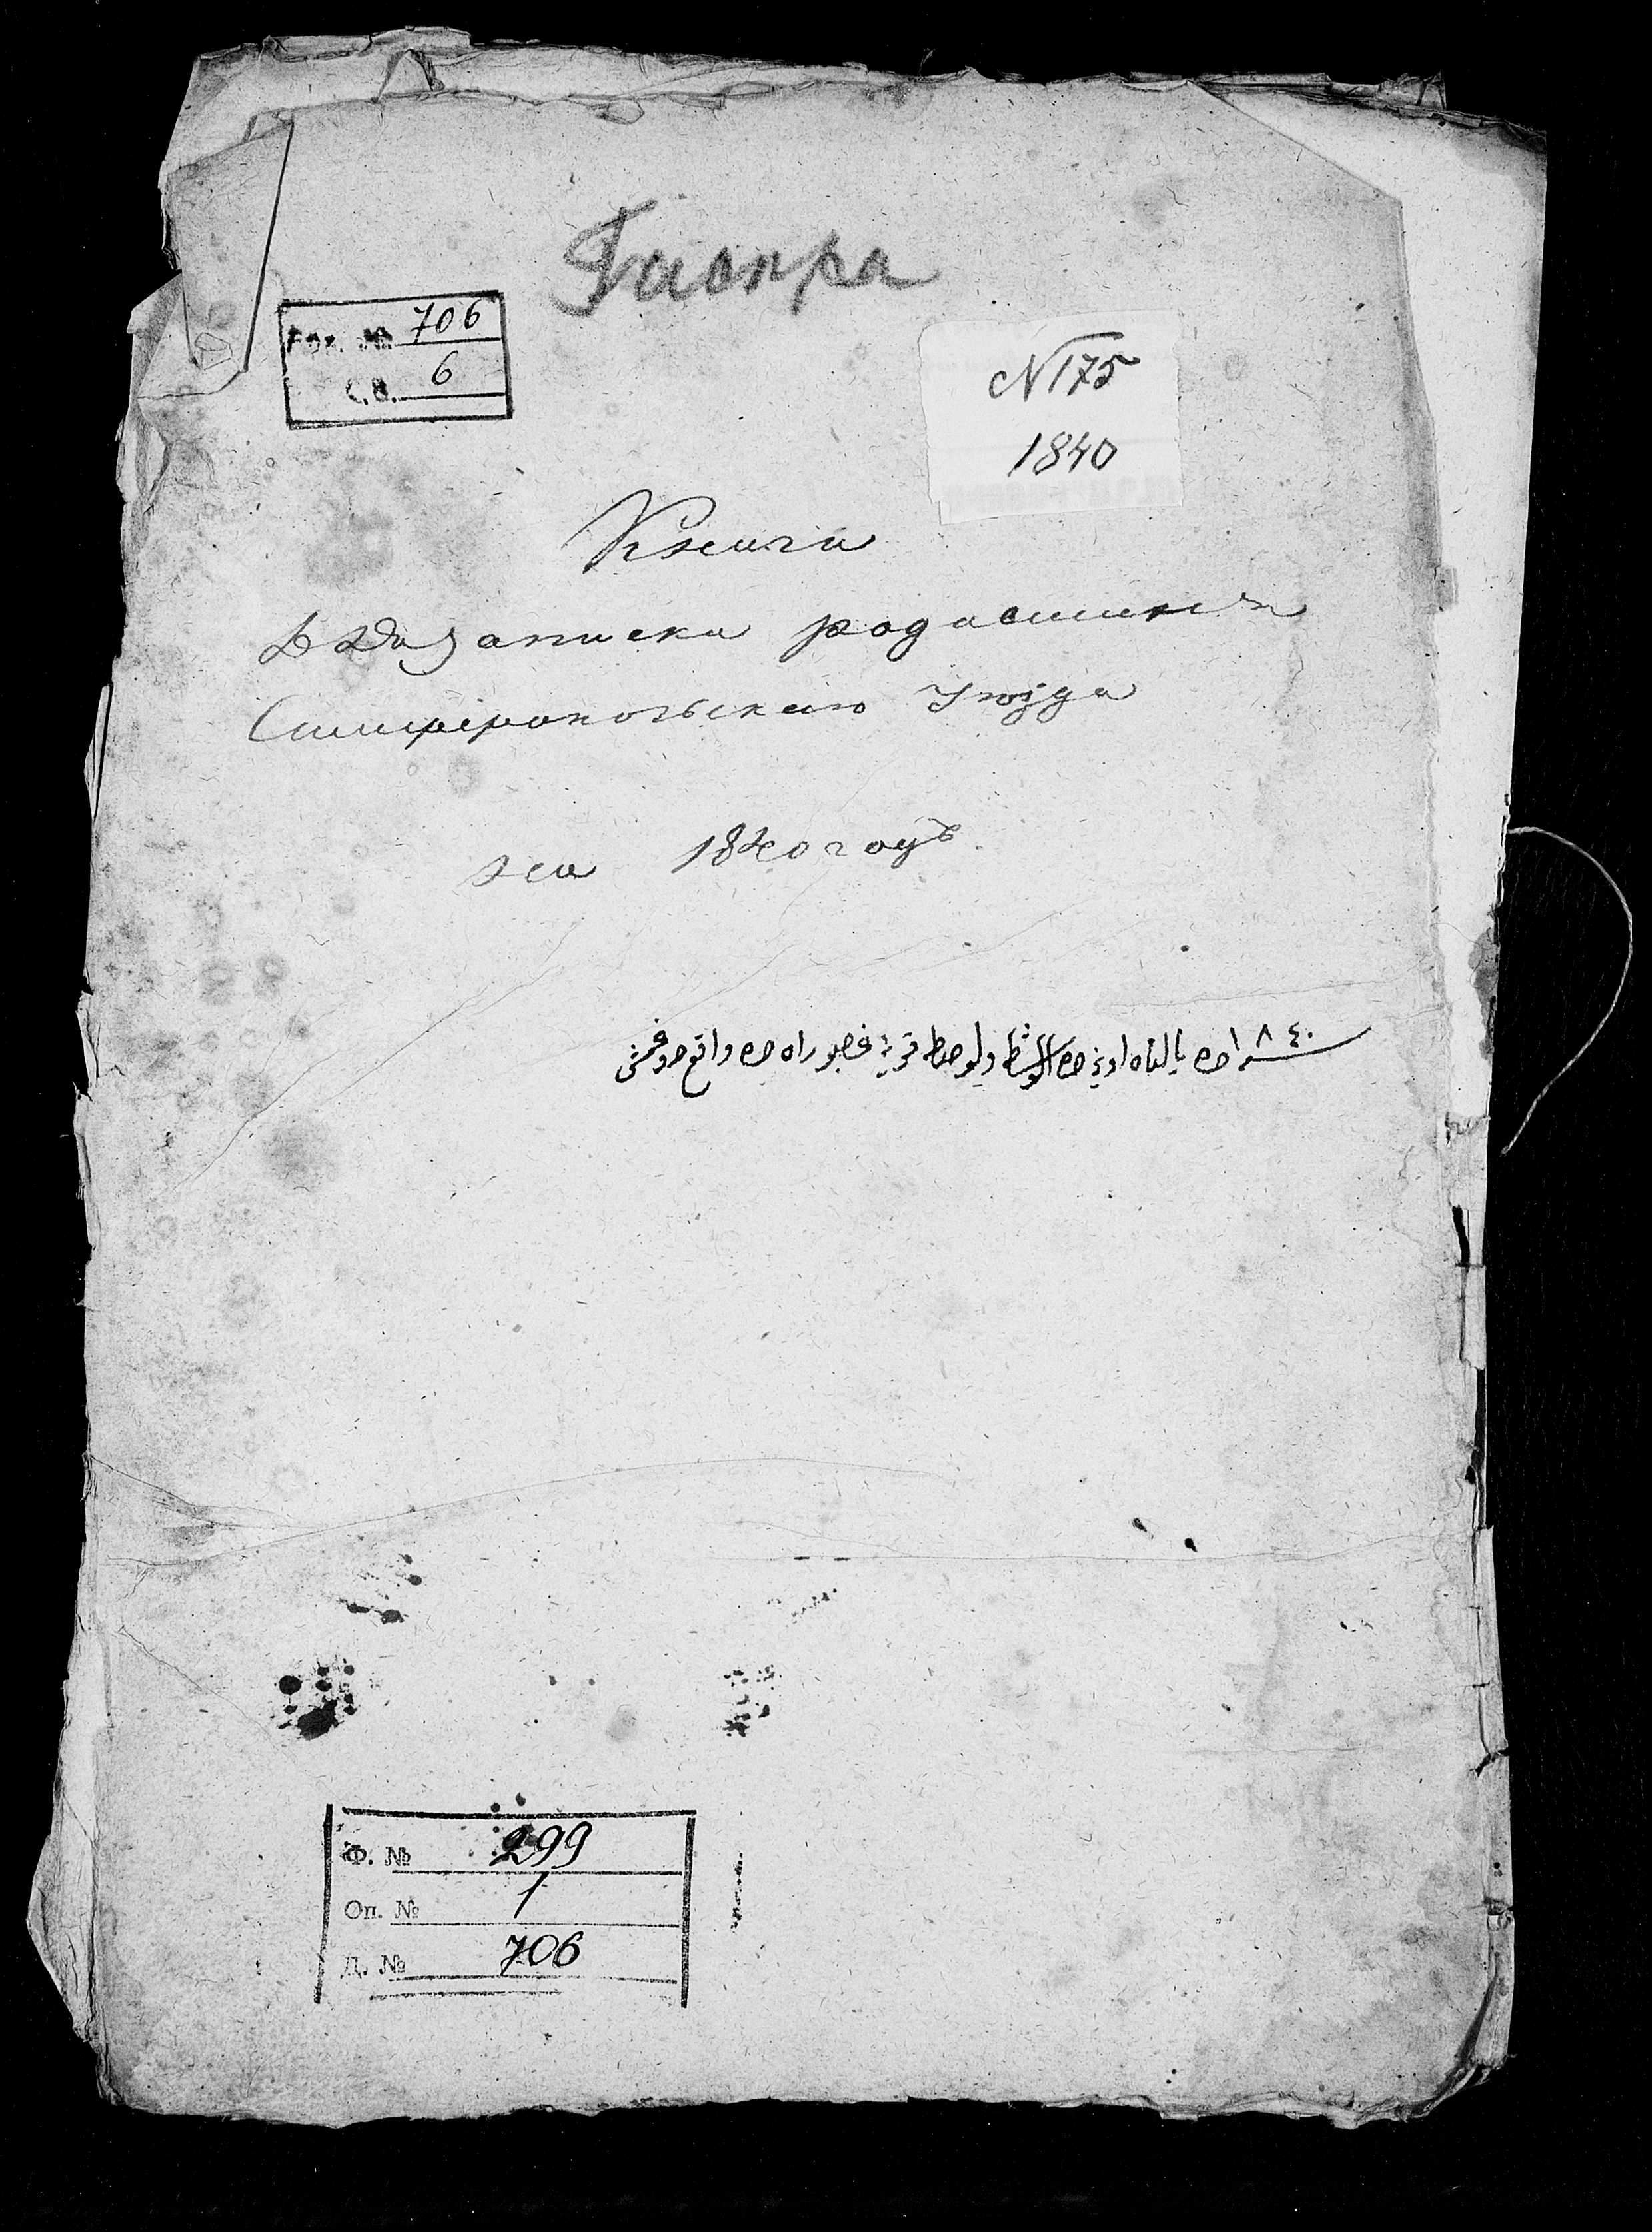 Гаспра
Гор. № 706
Св. 6
N 175
1840
Книга
Для записки родившихся
Симферопольского Уезда
на 1840 годъ
١٨٤٠
Ф. № 299
Оп. № 1
Д. № 706